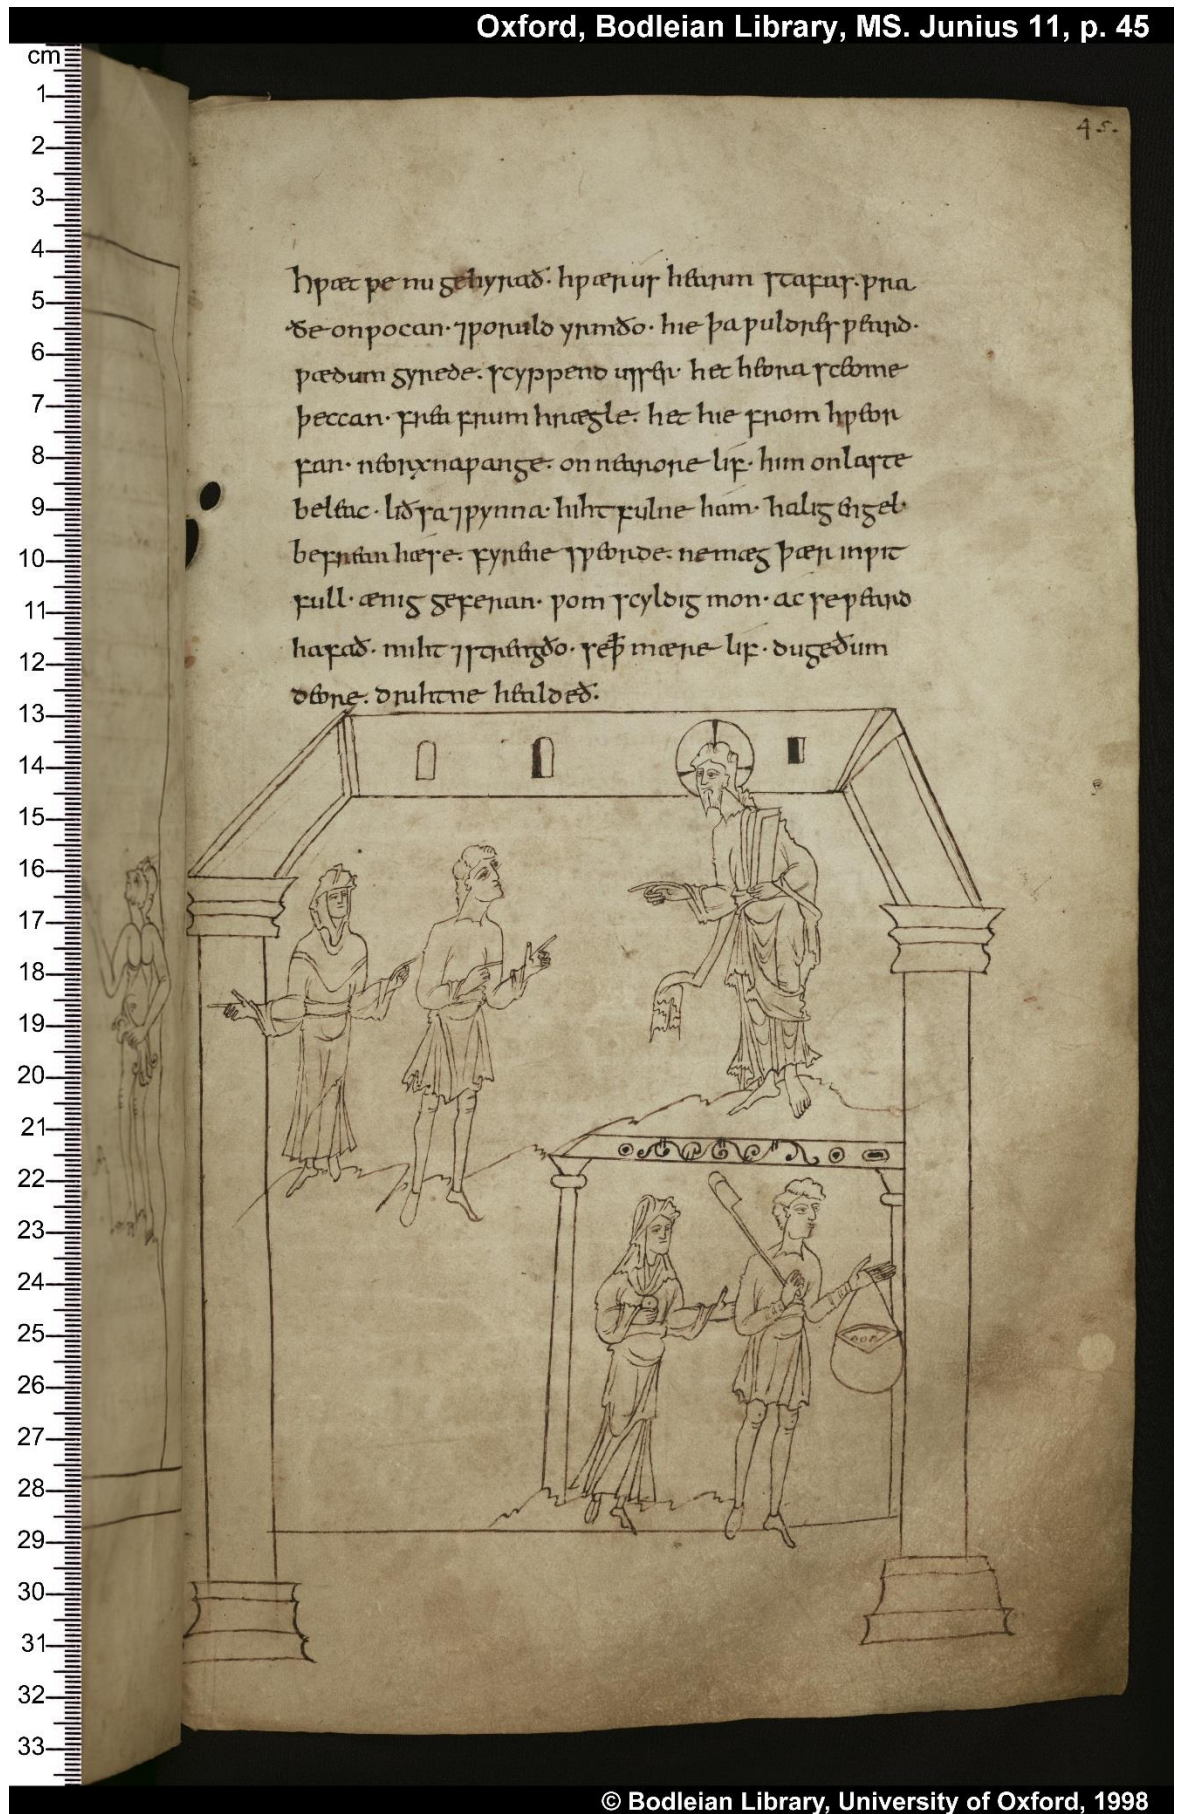 Oxford, Bodleian Library, MS. Junius 11, p. 45
cm
1
2
3
4
5
6
7
8
9
10
11
12
13
14
15
16
17
18
19
20
21
22
23
24
25
26
27
28
29
30
31
32
33
45.
hƿæt ƿe nu gehyrað· hƿær us hearm stafas· ƿra
ðe onƿocan· ⁊ ƿoruld yrmðo· hie þa ƿuldres ƿeard·
ƿædum gyrede· scyppend usser· het heora sceome
þeccan· frea frum hrægle· het hie from hƿeor
fan· neorxnaƿange· on nearore lif· him on laste
beleac· liðsa ⁊ ƿynna· hiht fulne hám· halig engel·
be frean hæse· fyrene sƿeorde· ne mæg þær inƿit
full· ænig geferan· ƿom scyldig mon· ac se ƿeard
hafað· miht ⁊ strengðo· se ꝥ mære lif· dugeðum
deore· drihtne healdeð·
© Bodleian Library, University of Oxford, 1998